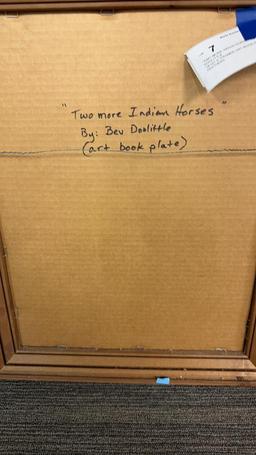 7
"Two more Indian Horses"
By: Bev Doolittle
(art book plate)